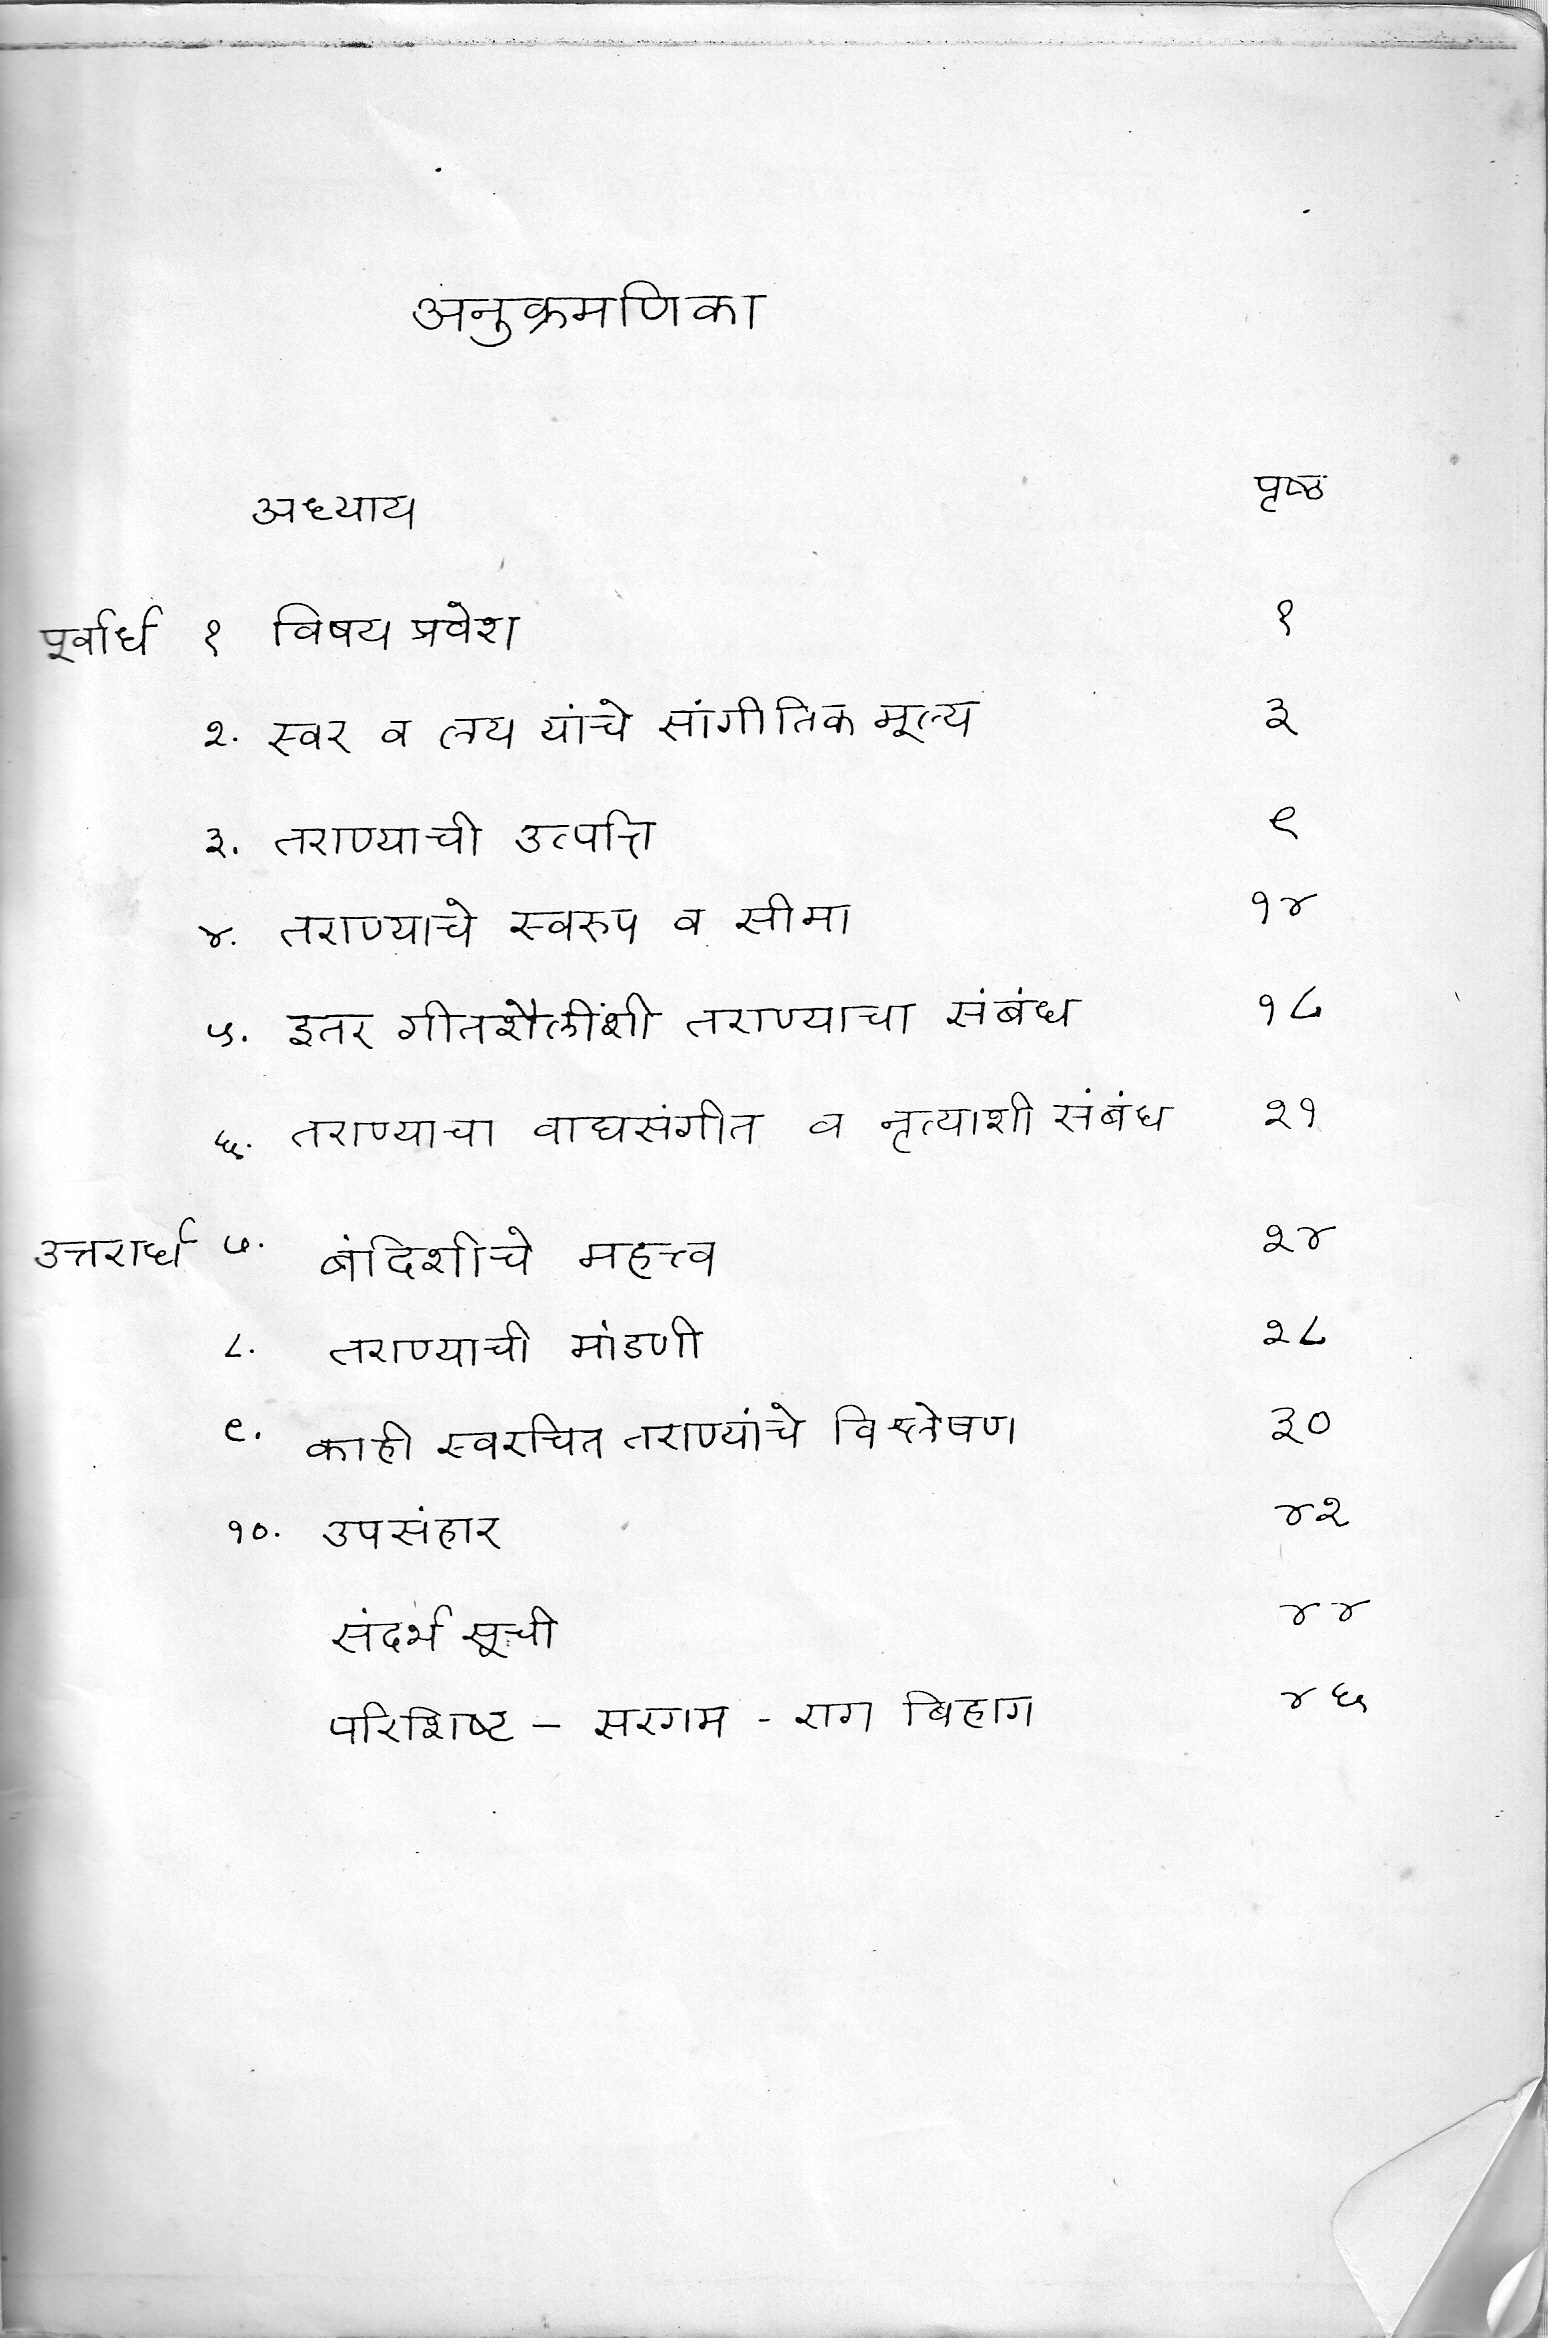 अनुक्रमणिका
अध्याय पृष्ठ
पूर्वार्ध १ विषय प्रवेश १
२. स्वर व लय यांचे सांगीतिक मूल्य ३
३. तराण्याची उत्पत्ति ९
४. तराण्याचे स्वरुप व सीमा १४
५. इतर गीतशैलींशी तराण्याचा संबंध १८
६. तराण्याचा वाद्यसंगीत व नृत्याशी संबंध २१
उत्तरार्ध ७. बंदिशीचे महत्त्व २४
८. तराण्याची मांडणी २८
९. काही स्वरचित तराण्यांचे विश्लेषण ३०
१०. उपसंहार ४२
संदर्भ सूची ४४
परिशिष्ट – सरगम - राग बिहाग ४६